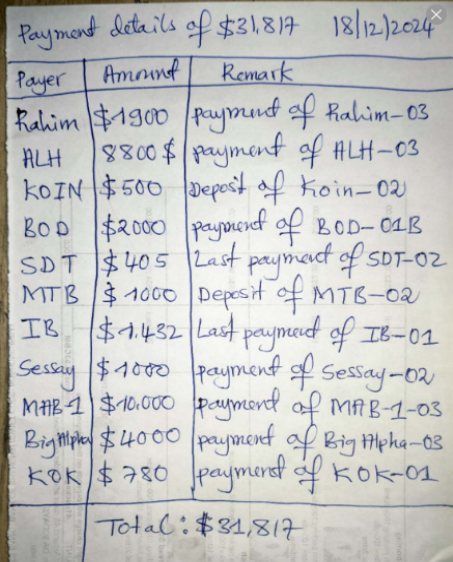 Payment details of $31,817 18/12/2024
Payer Amount Remark
Rahim $1900 payment of Rahim-03
ALH 8800$ payment of ALH-03
KOIN $500 Deposit of Koin-02
BOD $2000 payment of BOD-01B
SDT $405 Last payment of SDT-02
MTB $1000 Deposit of MTB-02
IB $1.432 Last payment of IB-01
Sessay $1000 payment of Sessay-02
MAB-1 $10.000 payment of MAB-1-03
Big Alpha $4000 payment of Big Alpha-03
KOK $780 payment of KOK-01
Total: $31,817